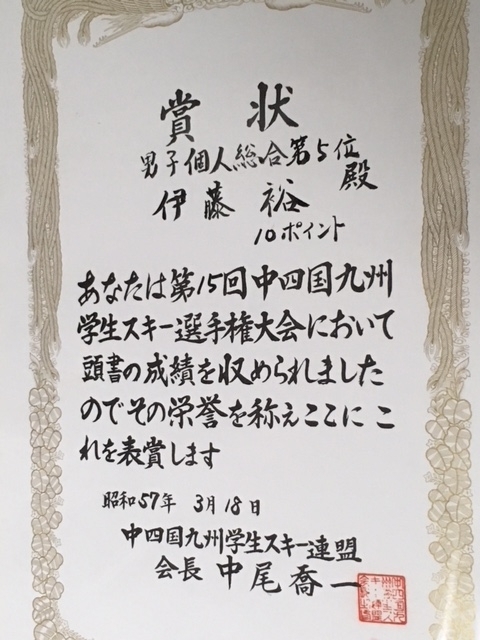 賞状
男子個人総合第5位
伊藤 裕 殿
10ポイント
あなたは第15回中四国九州
学生スキー選手権大会において
頭書の成績を収められました
のでその栄誉を称えここにこ
れを表賞します
昭和57年 3月18日
中四国九州学生スキー連盟
会長 中尾喬一